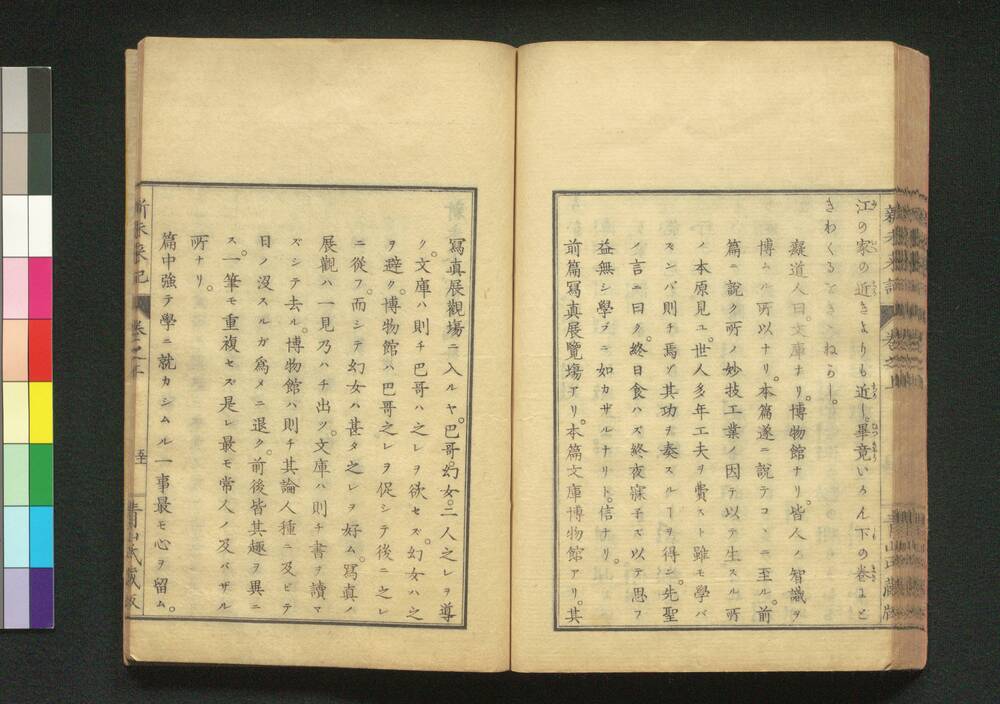 江の家の近きよりも近し。畢竟いろん下の巻まと
きわくるをきゝねらし。
癡道人曰。文庫ナリ。博物館ナリ。皆人ノ智識ヲ
博ムル所以ナリ。本篇遂ニ說テコヽニ至ル。前
篇ニ說ク所ノ妙技工業ノ因テ以テ生スル所
ノ本原見ユ。世人多年工夫ヲ費スト雖モ學バ
ズンバ則チ焉ゾ其功ヲ奏スルヿヲ得ン。先聖
ノ言ニ曰ク。終日食ハズ終夜寐子ズ以テ思フ
益無シ學ブニ如カザルナリト。信ナリ。
前篇寫眞展覽場アリ。本篇文庫博物館アリ。其
寫眞展觀場ニ入ルヤ。巴哥。幻女。二人之レヲ導
ク。文庫ハ則チ巴哥ハ之レヲ欲セズ。幻女ハ之
ヲ避ク。博物館ハ巴哥之レヲ促シテ後ニ之レ
ニ從フ。而シテ幻女ハ甚タ之レヲ好ム。寫眞ノ
展觀ハ一見乃ハチ出ツ。文庫ハ則チ書ヲ讀マ
ズシテ去ル。博物館ハ則チ其論人種ニ及ビテ
日ノ沒スルガ爲メニ退ク。前後皆其趣ヲ異ニ
ス。一筆モ重複セズ是レ最モ常人ノ及バザル
所ナリ。
篇中強テ學ニ就カシムル一事最モ心ヲ留ム。
新未來記